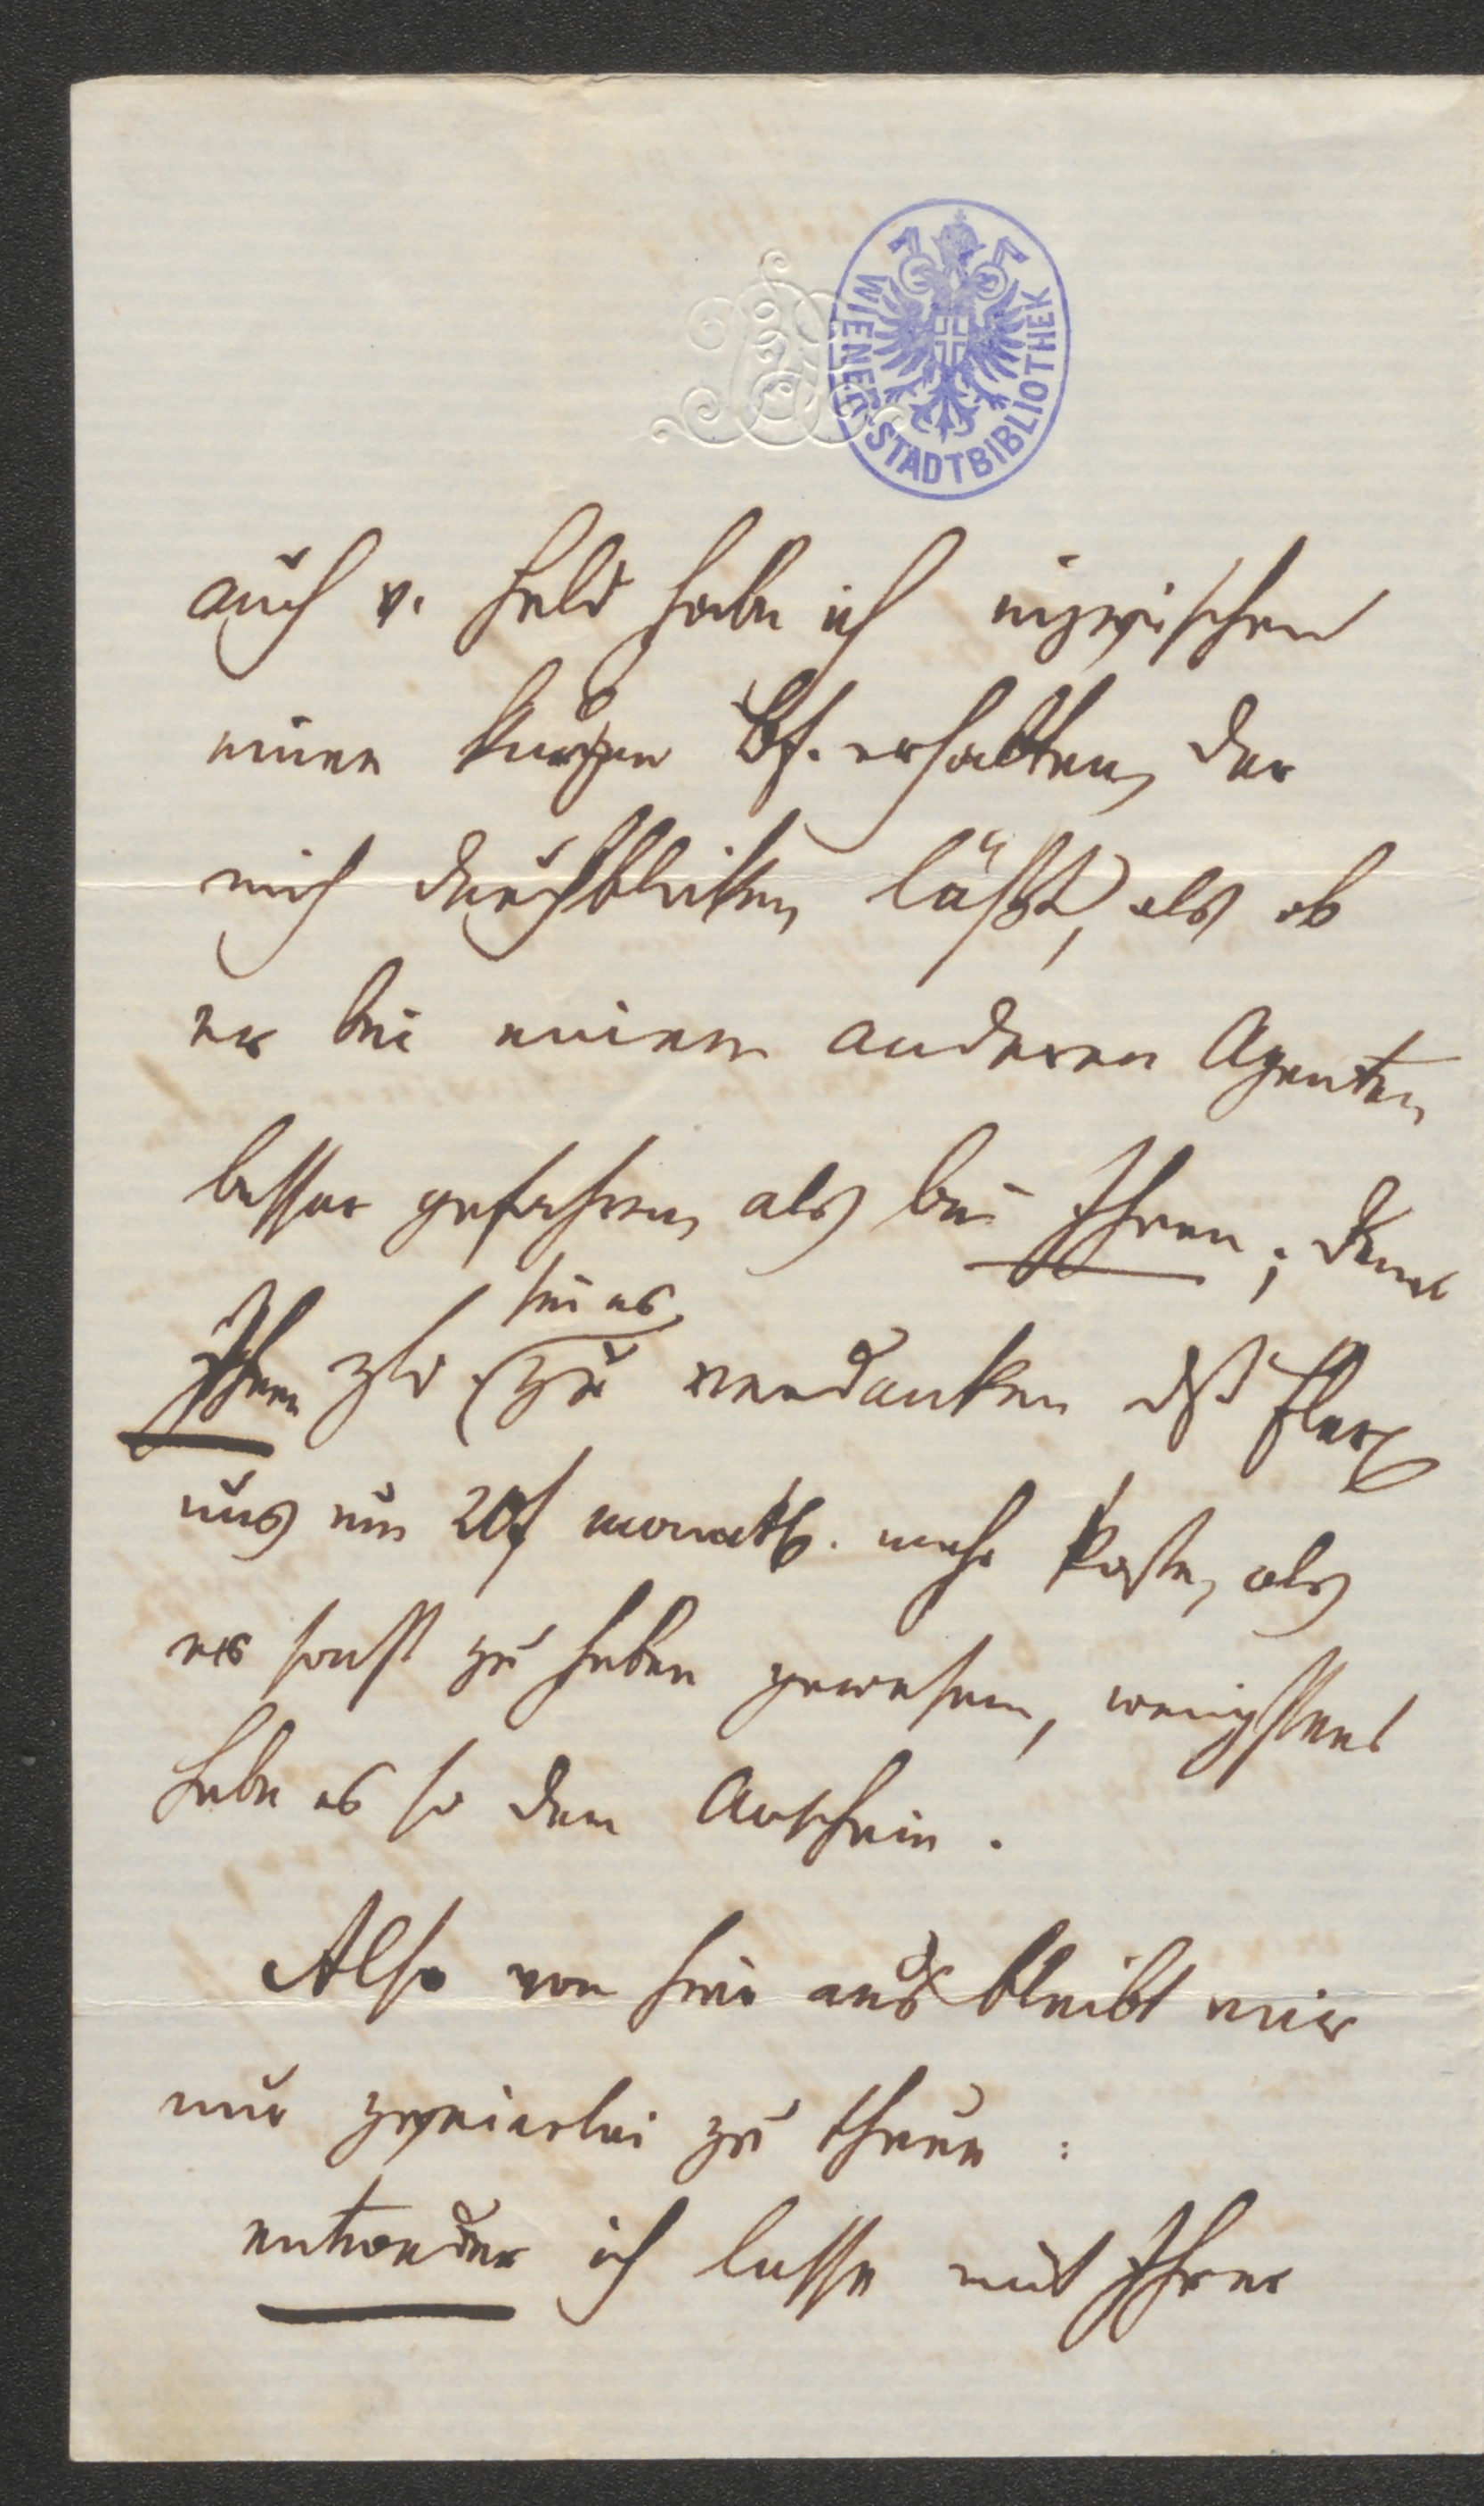 WIENER STADTBIBLIOTHEK
auch v. Held habe ich inzwischen
einen kurzen Bf. erhalten, der
mich durchblicken läßt, als ob
er bei einem anderen Agenten
besser gefahren, als bei Ihnen; denn
sei es
Ihnen zu verdanken dß
uns um 20f monatl. mehr koste, als
er sonst zu haben gewesen, wenigstens
habe es so den Anschein.
Also von hier aus bleibt mir
nur zweierlei zu thun:
entweder ich lasse mit Ihrer